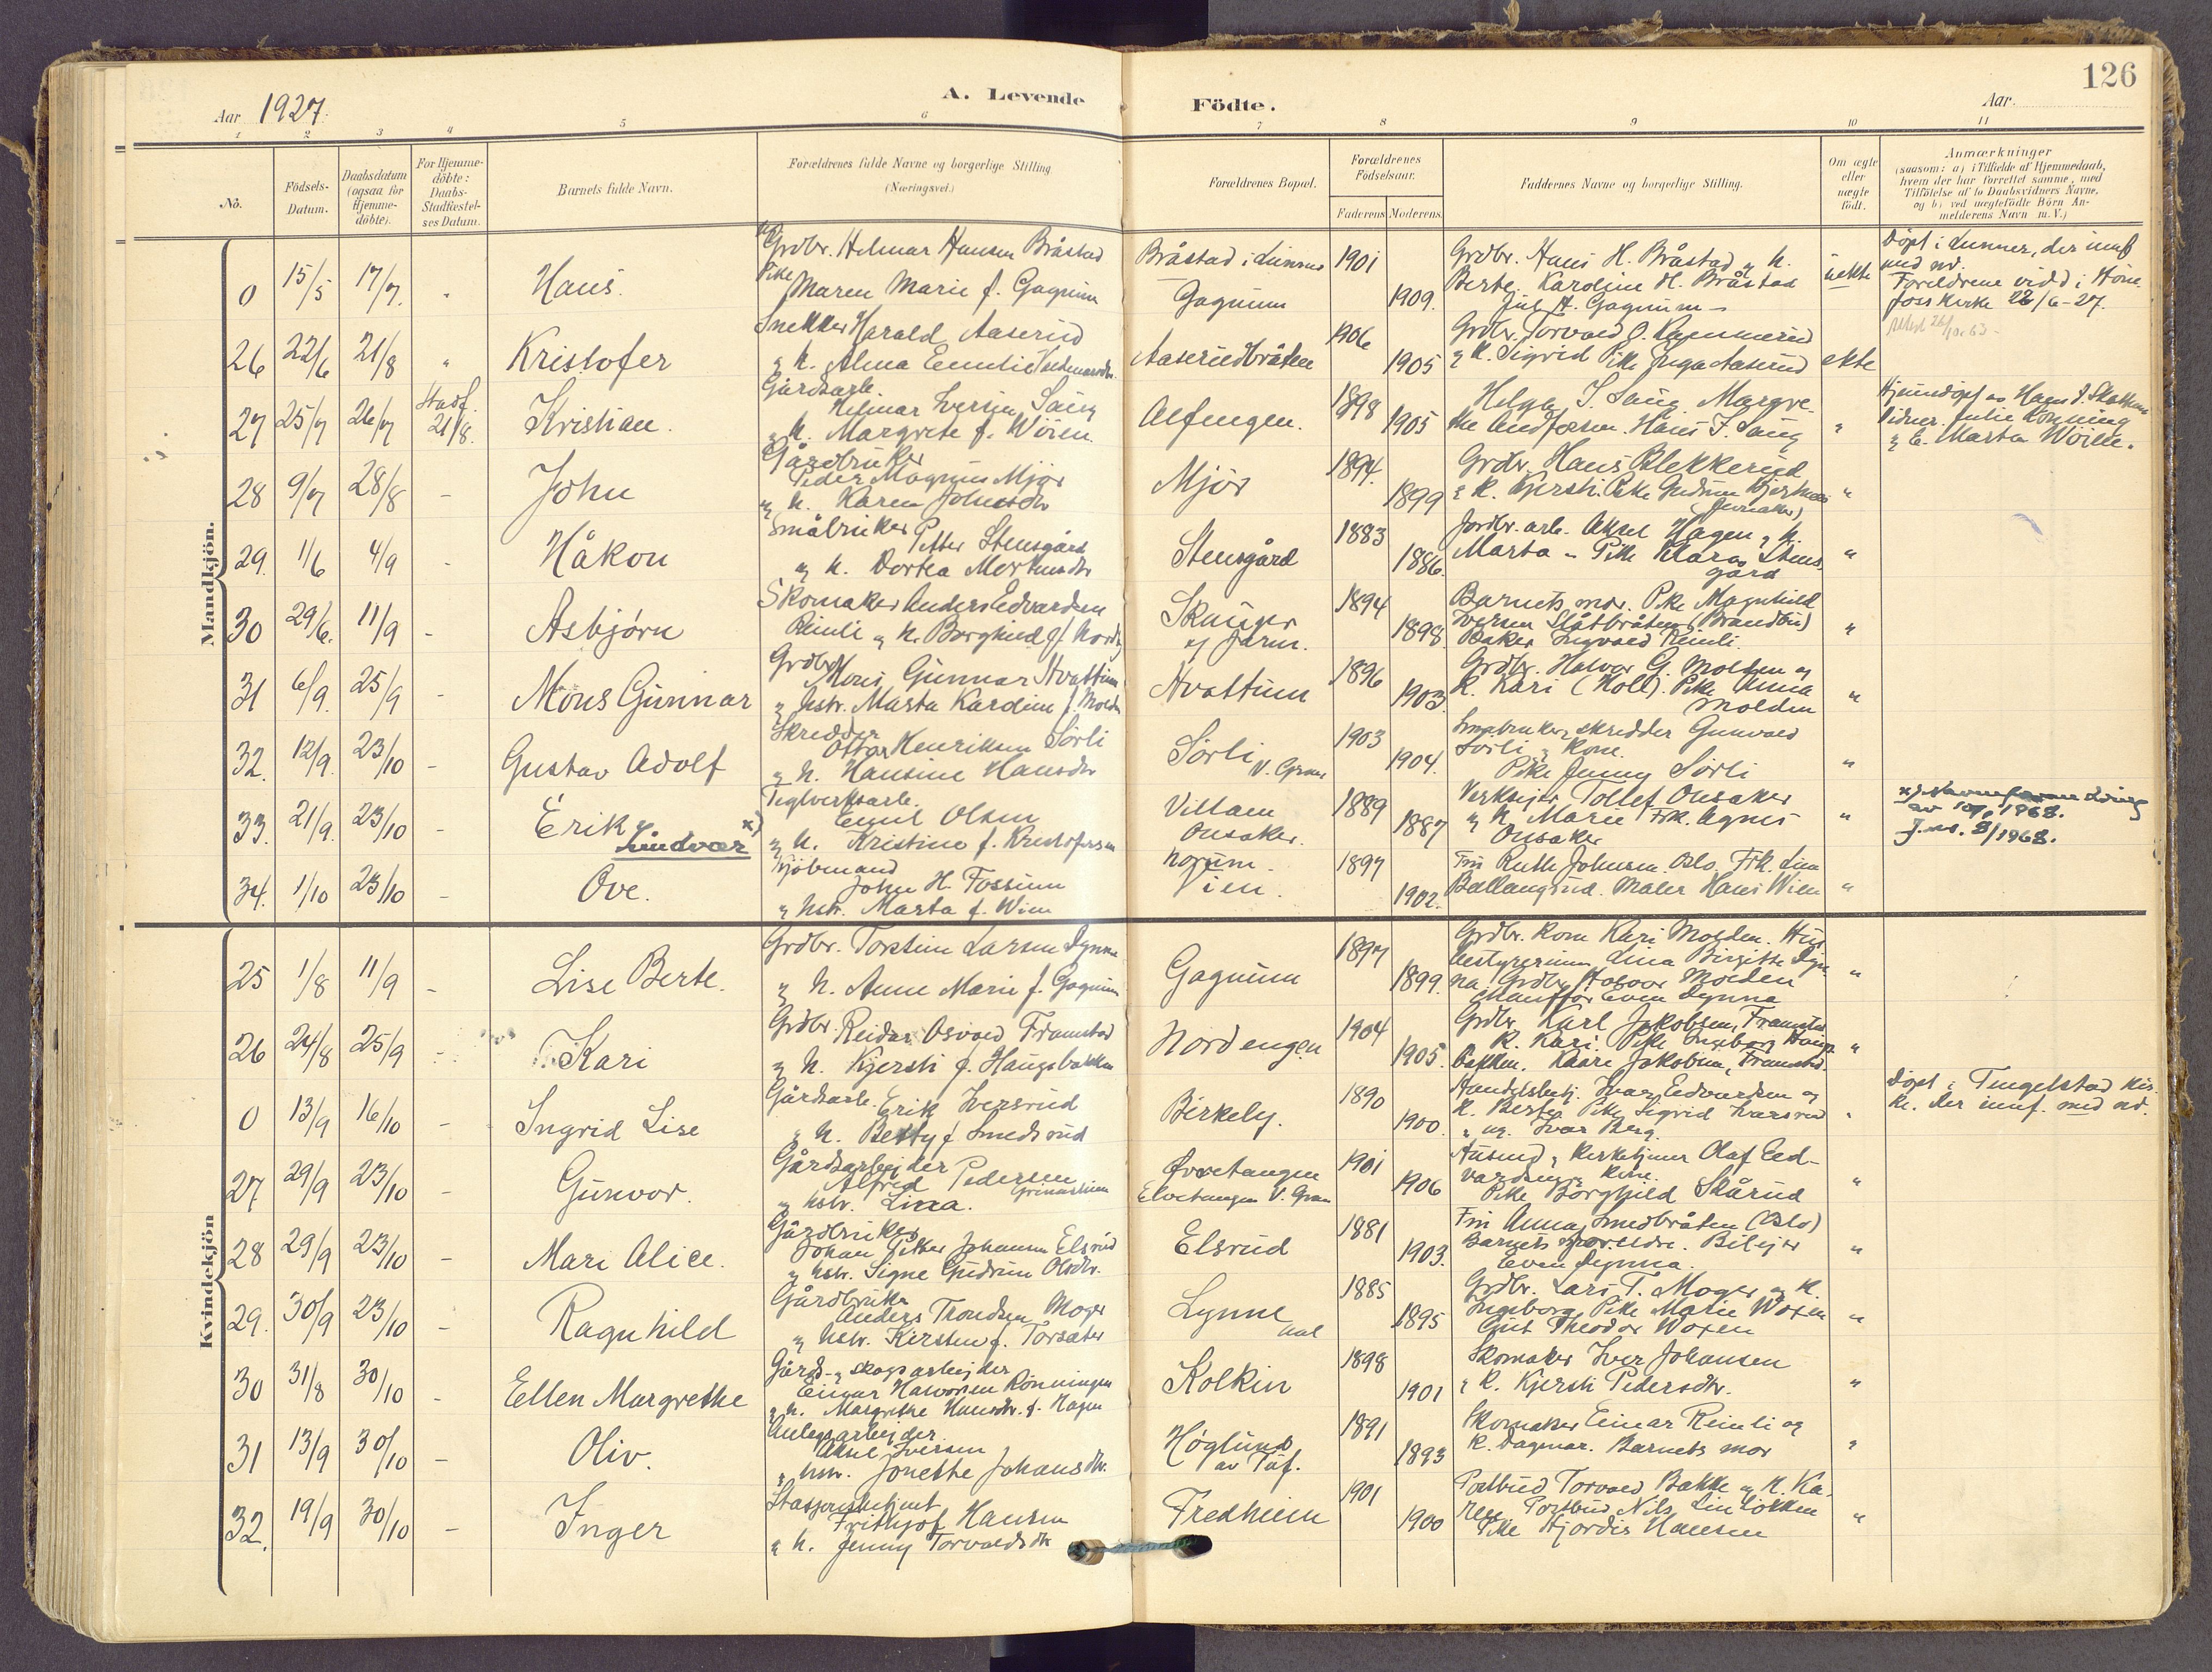 126
Aar 1927.
A. Levende Födte.
Aar.
1 2 3 4 5 6 7 8 9 10 11
No.
Födsels-Datum.
Daabsdatum (ogsaa for Hjemme-döbte).
For Hjemme-döbte: Daabs-Stadfæstel-ses Datum.
Barnets fulde Navn.
Forældrenes fulde Navne og borgerlige Stilling (Næringsvei.)
Forældrenes Bopæl.
Forældrenes Födselsaar.
Faderens Moderens
Faddernes Navne og borgerlige Stilling.
Om ægte eller uægte födt.
Anmærkninger
(saasom: a) i Tilfælde af Hjemmedaab,
hvem der har forrettet samme, med
Tilföielse af to Daabsvidners Navne,
og b) ved uægtefödte Börn An-
melderens Navn m. V.)
Mandkjön.
0 15/5 17/7. Hans.
Grdbr. Helmar Hansen Bråstad
Pike Maren Marie f. Gagnum
Bråstad i Lunner
Gagnum
1901 1909.
Grdbr. Hans H. Bråstad og k.
Berte. Karoline H. Bråstad
Gagnum
uekte
Döpt i Lunner, der innf.
med no.
Foreldrene vidd i Höne
foss kirke 22/6-27.
26 22/6 21/8 " Kristofer
Snekker Harald Aaserud
og h. Alma Emilie
Aaserudbråten
1906 1905
Grdbr. Torvald
og K. Sigrid Pike Inga Aaserud
ekte
27 25/7 26/7 Stadf. 21/8. Kristian.
Gårdsarb.
Helmar Iversen Saug
og h. Margrete f. Wöien.
Alfengen.
1898 1905
Helge I. Saug. Margre-
the Andfossen. Hans I. Saug
"
Hjemmedöpt av Hans
Vidner. Julie
og E. Marta Wöien.
28 9/7 28/8 - John
Gårdbruker
Peder Magnus Mjör
og h. Karen Johnsdtr
Mjör
1894. 1899
Grdbr. Hans Blekkerud
og K. Kjersti. Pike Gudrun
(Jevnaker)
"
29. 1/6 4/9 - Håkon
Småbruker Petter Stensgård
og h. Dortea Mortensdtr
Stensgård
1883 1886.
Jordbr. arb. Aksel Hagen og h.
Marta - Pike Klara Stens-
gård
"
30 29/6. 11/9 - Asbjörn
Skomaker Anders Edvardsen
Reinli og h. Borghild
Skauger
1894 1898.
Barnets mor. Pike Magnhild
Iversen Slåtbråten (Brandbu)
Baker Ingvald Reinli.
"
31 6/9. 25/9 - Mons Gunnar
Grdbr.
Mons Gunnar Hvattum
og hstr. Marta Karoline f. Molden
Hvattum
1896 1903.
Grdbr. Halvor G. Molden og
K. Kari (Holl). Pike Anna
Molden
"
32. 12/9. 23/10 - Gustav Adolf
Skredder
Ottar Henriksen Sörli
og h. Hansine Hansdtr
Sörli V. Gran
1903 1904.
Småbruker, skredder Gunvald
Sörli og Kone.
Pike Jenny Sörli
"
33. 21/9. 23/10 - Erik x)
Lindvær
Teglverksarb.
Emil Olsen
og h. Kristine f. Kristoffersen
Villam
Onsaker.
1889 1887
Verkseier Tollef Onsaker
og h. Marie Frk. Agnes
Onsaker
"
x)
av 10/1 1968.
J.nr. 8/1968.
34. 1/10 23/10 - Ove.
Kjöbmand
John H. Fossum
og hstr. Marta f. Wien
Norum.
Vien.
1897 1902.
Fru Ruth Johnsen Oslo, Frk. Lina
Ballangrud. Maler Hans Wien
"
Kvindekjön
25 1/8 11/9 - Lise Berte.
Grdbr. Torstein Larsen Dynna
og h. Anne Marie f. Gagnum
Gagnum
1897 1899.
Grdbr. kone Kari Molden. Hus-
bestyrerinne Lina Birgitte Dyn-
na, Grdbr. Halvor Molden
Chauffør Even Dynna
"
26 24/8 25/9 Kari
Grdbr. Reidar Osvald Framstad
og h. Kjersti f. Haugsbakken
Nordengen
1904 1905.
Grdbr. Karl Jakobsen, Framstad
K. Kari. Pike Ingeborg Haugs-
bakken. Kaare Jakobsen, Framstad.
"
0 13/9 16/10 - Ingrid Lise
Gårdsarb. Erik Iversrud
og h. Betty f. Smedsrud
Birkely.
1890 1900.
Handelsbetj. Ivar Edvardsen og
K. Berta Pike Sigrid Iversrud
og ug. Ivar Berg.
Döpt i Tingelstad kir-
ke. Der innf. med no.
27 29/9 23/10 - Gunvor.
Gårdsarbeider
Alfred Pedersen
og hstr. Lina.
Elvetangen V. Gran
1901 1906
Kirketjener Olaf Ed-
vardsen og kone.
Pike Borghild Skårud
"
28 29/9 23/10 - Mari Alice.
Gårdbruker
Johan Peter Johansen Elsrud
og hstr. Signe Gudrun Olsdtr.
Elsrud
1881 1903.
Fru Anna Smedbråten (Oslo)
Barnets foreldre. Bileier
Even Dynna.
"
29. 30/9 23/10 - Ragnhild
Gårdbruker
Anders Trondsen Moger
og hstr. Kirsten f. Torsæter
Lynne
1885 1895
Grdbr. Lars T. Moger og K.
Ingeborg. Pike Marie Woxen
Gut Theodor Woxen
"
30 31/8 30/10 - Ellen Margrethe
Gårds- og skogsarbeider
Einar Halvorsen Rönningen
og h. Margrethe Hansdtr. f. Hagen
Kolkin
1898 1901
Skomaker Iver Johansen
og K. Kjersti Pedersdtr.
"
31 13/9 30/10 - Oliv.
Anlegsarbeider.
Aksel Iversen
og hstr. Jonette Johansdtr.
Höglund
1891 1893
Skomaker Einar Reinli og
K. Dagmar. Barnets mor
"
32. 19/9 30/10 - Inger
Stasjonsbetjent
Frithjof Hansen
og h. Jenny Torvaldsdtr
Fredheim
1901 1900
Postbud Torvald Bakke og K. Ka-
ren Postbud Nils Linlökken
Pike Hjördis Hansen
"